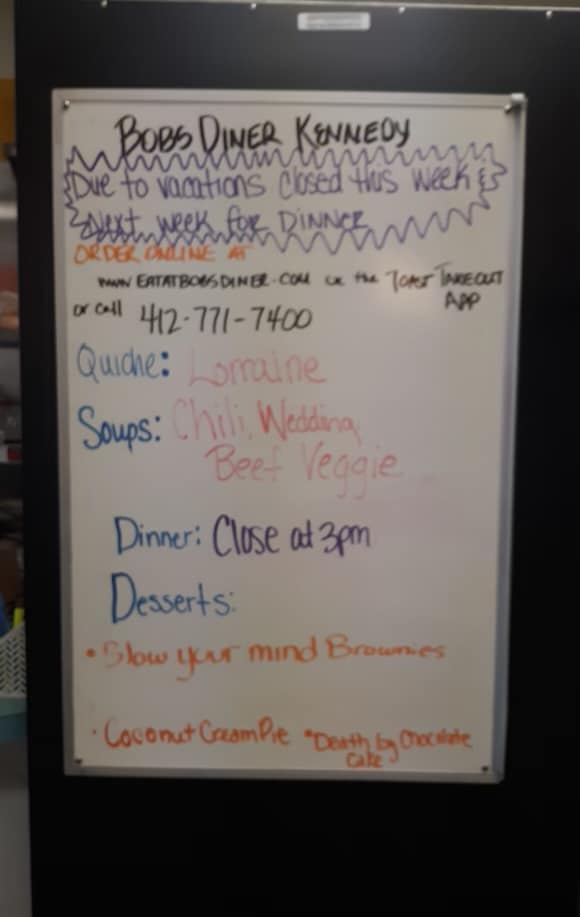 BOBS DINER KENNEDY
Due to vacations closed this week &
Next week for DINNER
ORDER ONLINE AT
www EATATBOBSDINER.COM or the TOAST TAKEOUT
APP
or call 412-771-7400
Quiche: Lorraine
Soups: Chili, Wedding,
Beef Veggie
Dinner: Close at 3pm
Desserts:
• Blow your mind Brownies
• Coconut Cream Pie • Death by Chocolate
Cake